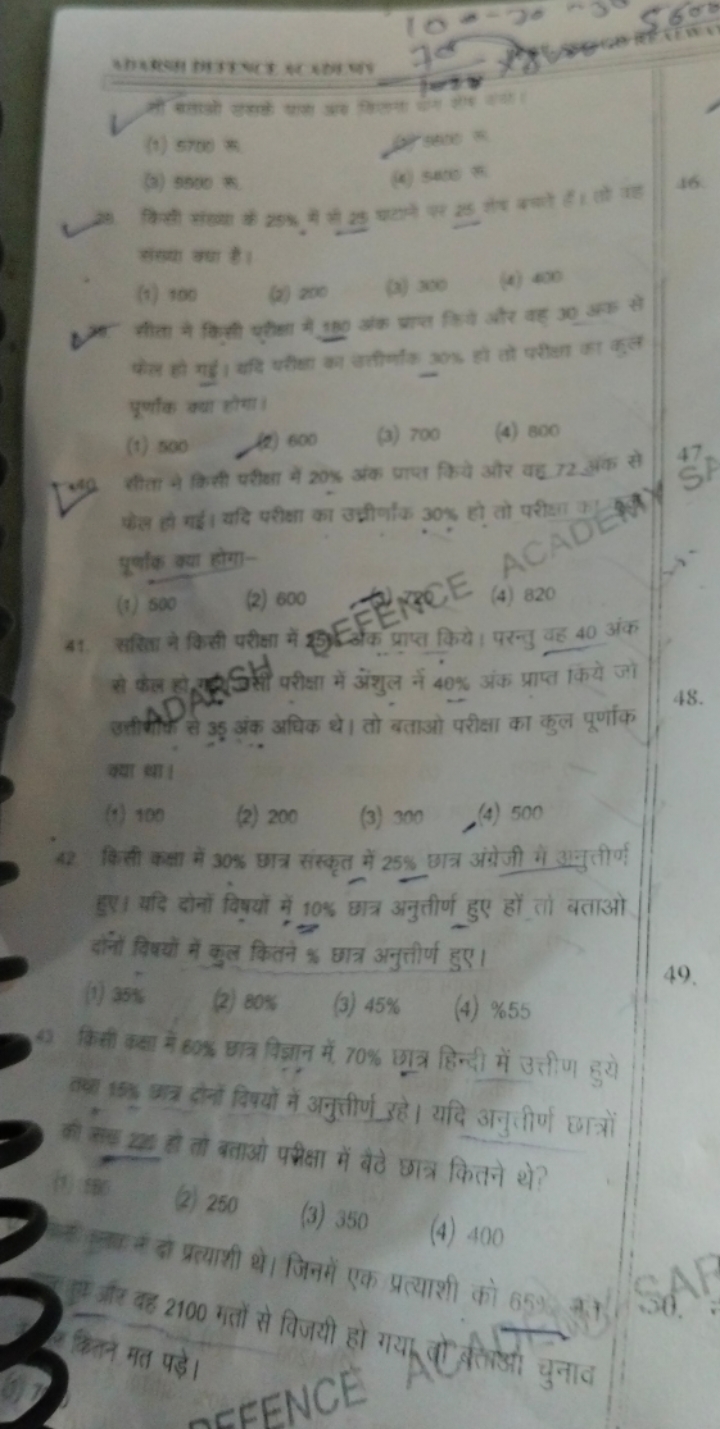 100-70-30
5600
70
ADARSH DEFENCE ACADEMY
तो बताओ उसके पास अब कितना धन शेष बचा।
(1) 5700 रू. (2) 5600 रू.
(3) 5500 रू. (4) 5400 रू.
किसी संख्या के 25% में से 25 घटाने पर 25 शेष बचते हैं। तो वह
संख्या क्या है।
(1) 100 (2) 200 (3) 300 (4) 400
सीता ने किसी परीक्षा में 180 अंक प्राप्त किये और वह 30 अंक से
फेल हो गई। यदि परीक्षा का उत्तीर्णांक 30% हो तो परीक्षा का कुल
पूर्णांक क्या होगा।
(1) 500 (2) 600 (3) 700 (4) 800
40. सीता ने किसी परीक्षा में 20% अंक प्राप्त किये और वह 72 अंक से
फेल हो गई। यदि परीक्षा का उत्तीर्णांक 30% हो तो परीक्षा का
पूर्णांक क्या होगा–
(1) 500 (2) 600 (3) 720 (4) 820
41. सरिता ने किसी परीक्षा में 25% अंक प्राप्त किये। परन्तु वह 40 अंक
से फेल हो परीक्षा में अंशुल नें 40% अंक प्राप्त किये जो
उत्तीर्णांक से 35 अंक अधिक थे। तो बताओ परीक्षा का कुल पूर्णांक
क्या था।
(1) 100 (2) 200 (3) 300 (4) 500
42 किसी कक्षा में 30% छात्र संस्कृत में 25% छात्र अंग्रेजी में अनुत्तीर्ण
हुए। यदि दोनों विषयों में 10% छात्र अनुत्तीर्ण हुए हों तो बताओ
दोनों विषयों में कुल कितने % छात्र अनुत्तीर्ण हुए।
(1) 35% (2) 80% (3) 45% (4) %55
43 किसी कक्षा में 60% छात्र विज्ञान में, 70% छात्र हिन्दी में उत्तीण हुये
तथा 15% छात्र दोनों विषयों में अनुत्तीर्ण रहे। यदि अनुत्तीर्ण छात्रों
की हो तो बताओ परीक्षा में बैठे छात्र कितने थे?
(2) 250 (3) 350 (4) 400
में दो प्रत्याशी थे। जिनमें एक प्रत्याशी को 65%
हुए और वह 2100 मतों से विजयी हो गया तो बताओ चुनाव
कितने मत पड़े।
46.
47.
48.
49.
50.
ADARSH DEFENCE ACADEMY SA
DEFENCE ACADEMY SAR